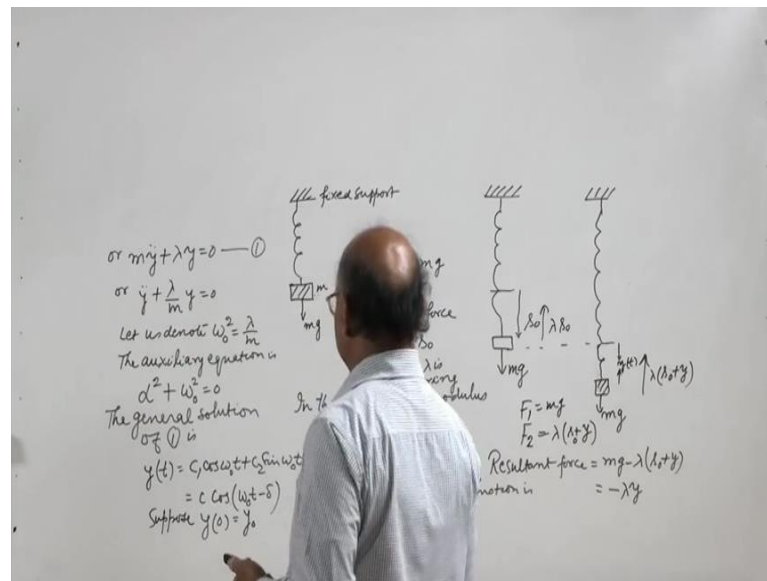 or mÿ+λy=0 — ①
or ÿ+λ/m y=0
Let us denote ω₀²=λ/m
The auxiliary equation is
α²+ω₀²=0
The general solution
of ① is
y(t)=C₁cosω₀t+C₂Sinω₀t
=C Cos(ω₀t-δ)
Suppose y(0)=y₀
fixed support
m
mg
mg
force
s₀
λ is
modulus
In th
s₀
λs₀
mg
y(t)
λ(s₀+y)
mg
F₁=mg
F₂=λ(s₀+y)
Resultant force=mg-λ(s₀+y)
motion is =-λy